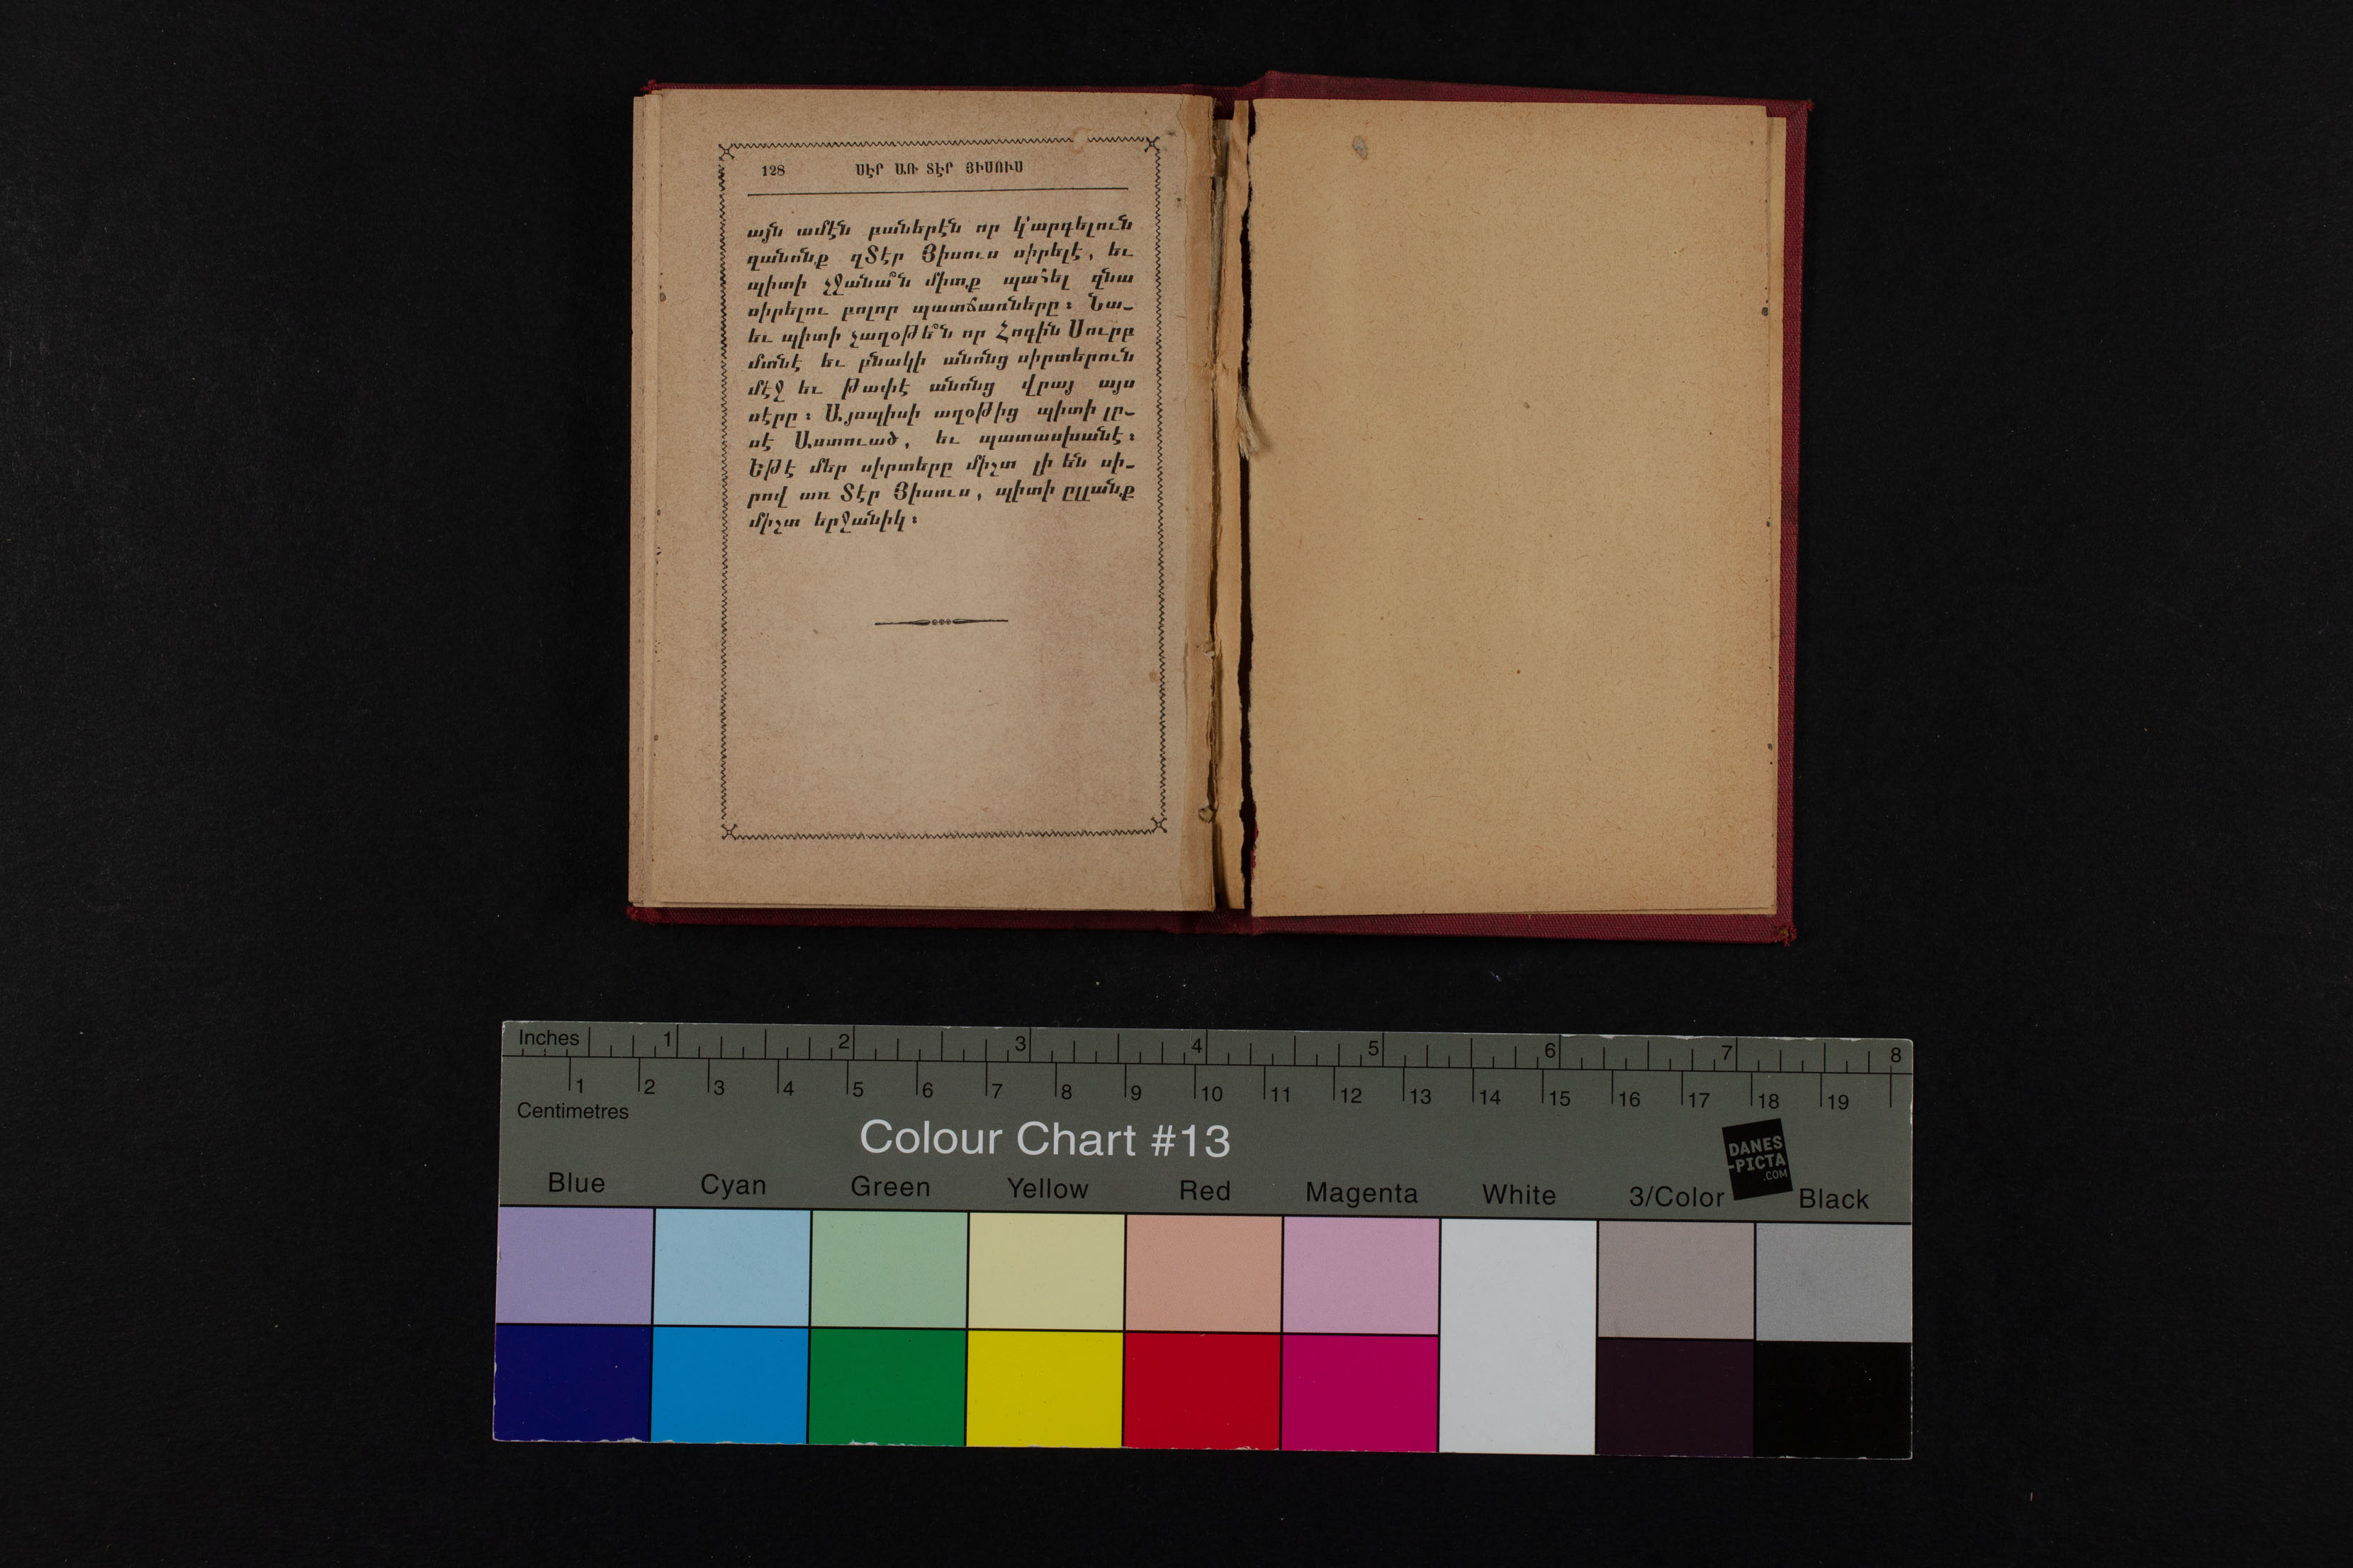 128 ՍԷՐ ԱՌ ՏԷՐ ՅԻՍՈՒՍ
այն ամէն բաներէն որ կ՚արգելուն
զանոնք զՏէր Յիսուս սիրելէ, եւ
պիտի չջանա՞ն միտք պահել զնա
սիրելու բոլոր պատճառները։ Նա–
եւ պիտի չաղօթե՞ն որ Հոգին Սուրբ
մտնէ եւ բնակի անոնց սիրտերուն
մէջ եւ թափէ անոնց վրայ այս
սէրը։ Այսպիսի աղօթից պիտի լը–
սէ Աստուած, եւ պատասխանէ։
Եթէ մեր սիրտերը միշտ լի են սի–
րով առ Տէր Յիսուս, պիտի ըլլանք
միշտ երջանիկ։
Inches 1 2 3 4 5 6 7 8
1 2 3 4 5 6 7 8 9 10 11 12 13 14 15 16 17 18 19
Centimetres
Colour Chart #13
DANES
-PICTA
.COM
Blue Cyan Green Yellow Red Magenta White 3/Color Black